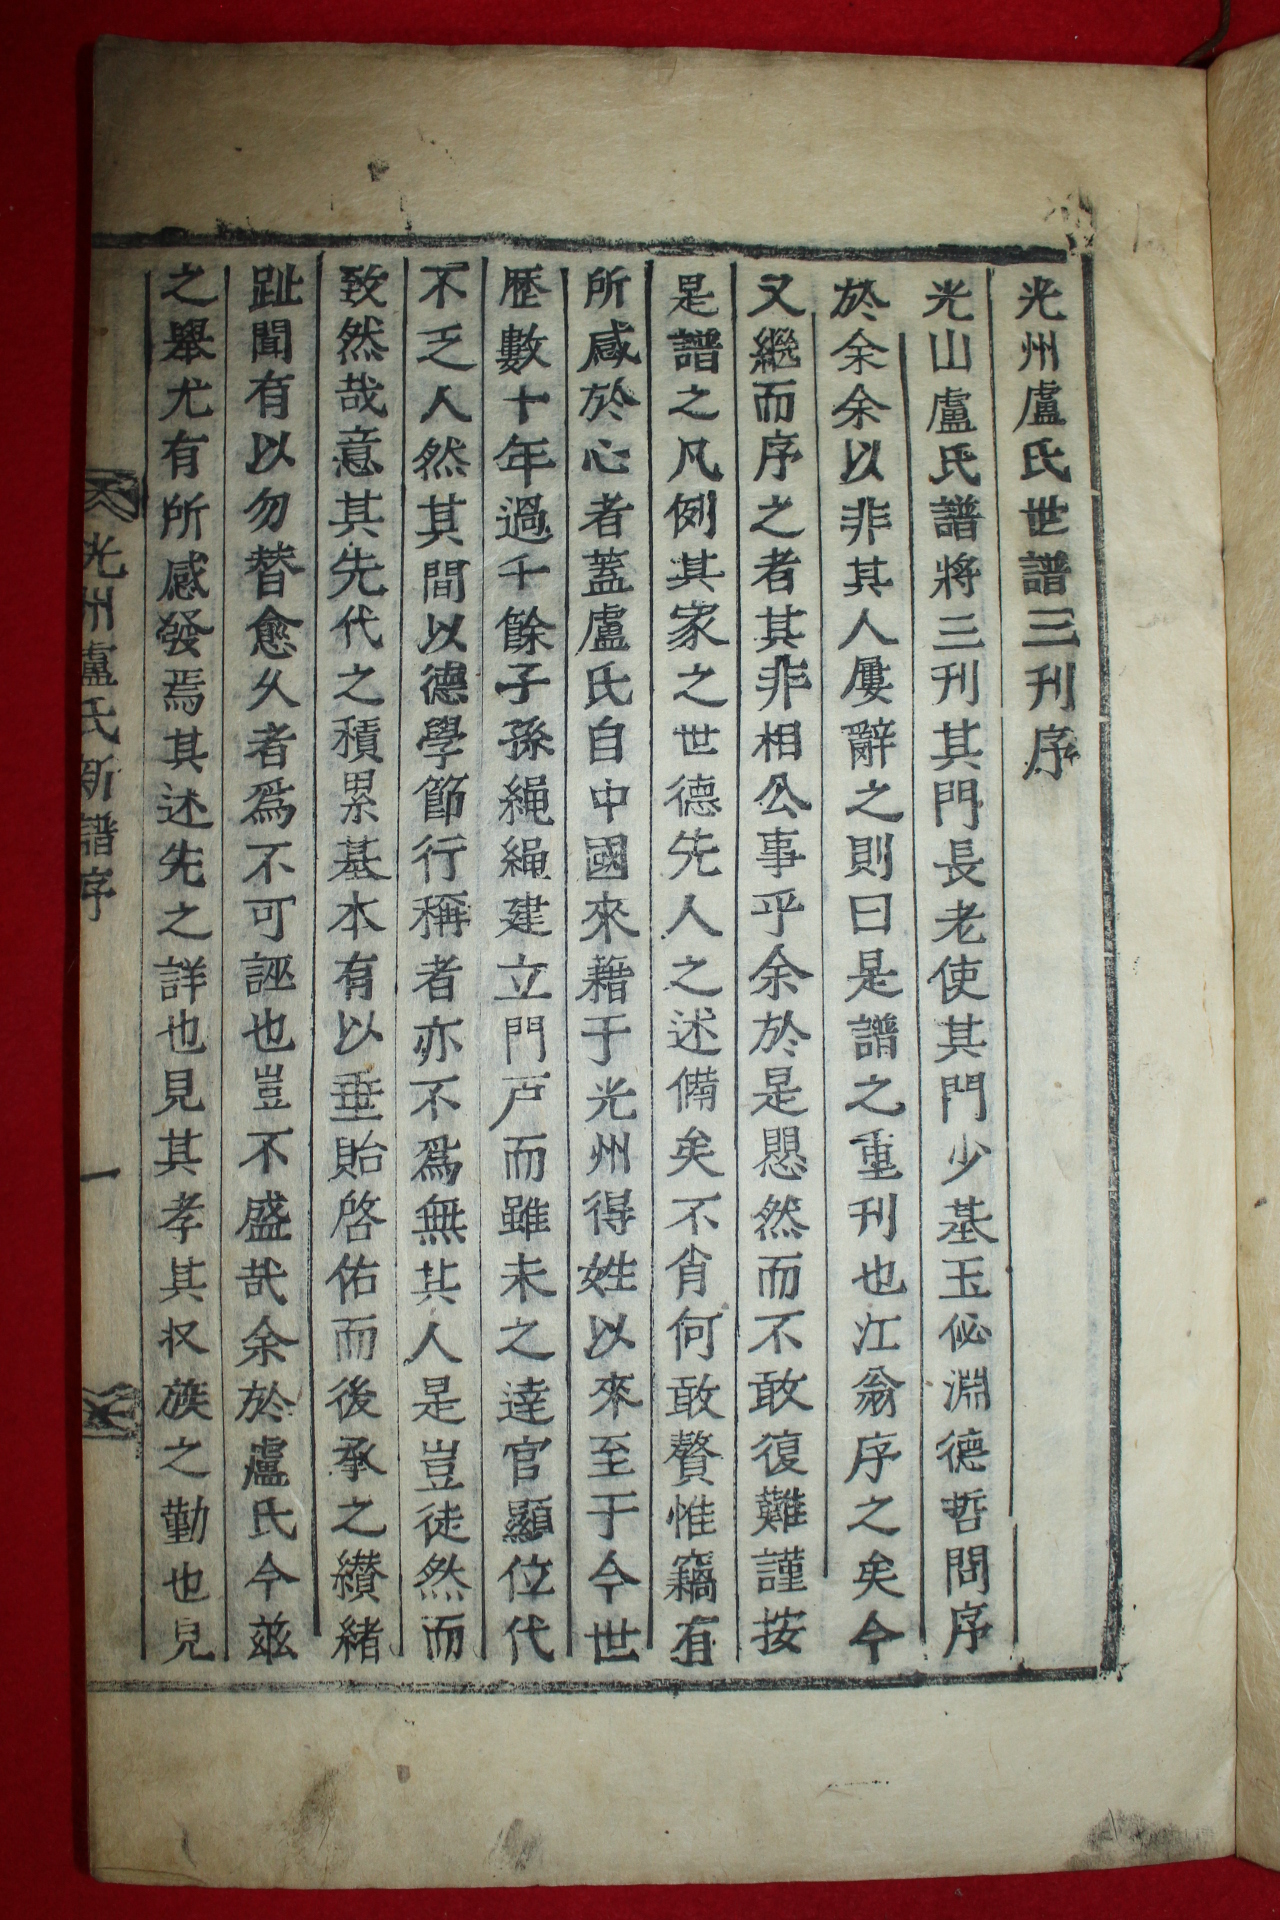 光州盧氏世譜三刊序
光山盧氏譜將三刊其門長老使其門少基玉佖淵德哲問序
於余余以非其人屢辭之則曰是譜之重刊也江翁序之矣今
又繼而序之者其非相公事乎余於是愳然而不敢復難謹按
是譜之凡例其家之世德先人之述備矣不肖何敢贅惟竊有
所感於心者蓋盧氏自中國來藉于光州得姓以來至于今世
歷數十年過千餘子孫繩繩建立門戶而雖未之達官顯位代
不乏人然其間以德學節行稱者亦不爲無其人是豈徒然而
致然哉意其先代之積累基本有以垂貽啓佑而後承之纘緒
趾聞有以勿替愈久者爲不可誣也豈不盛哉余於盧氏今玆
之擧尤有所感發焉其述先之詳也見其孝其収族之勤也見
光州盧氏新譜序
一